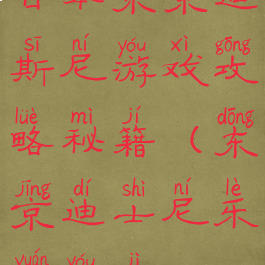 sī ní yóu xì gōng
斯尼游戏攻
lüè mì jí dōng
略秘籍(东
jīng dí shì ní lè
京迪士尼乐
yuán yóu jì